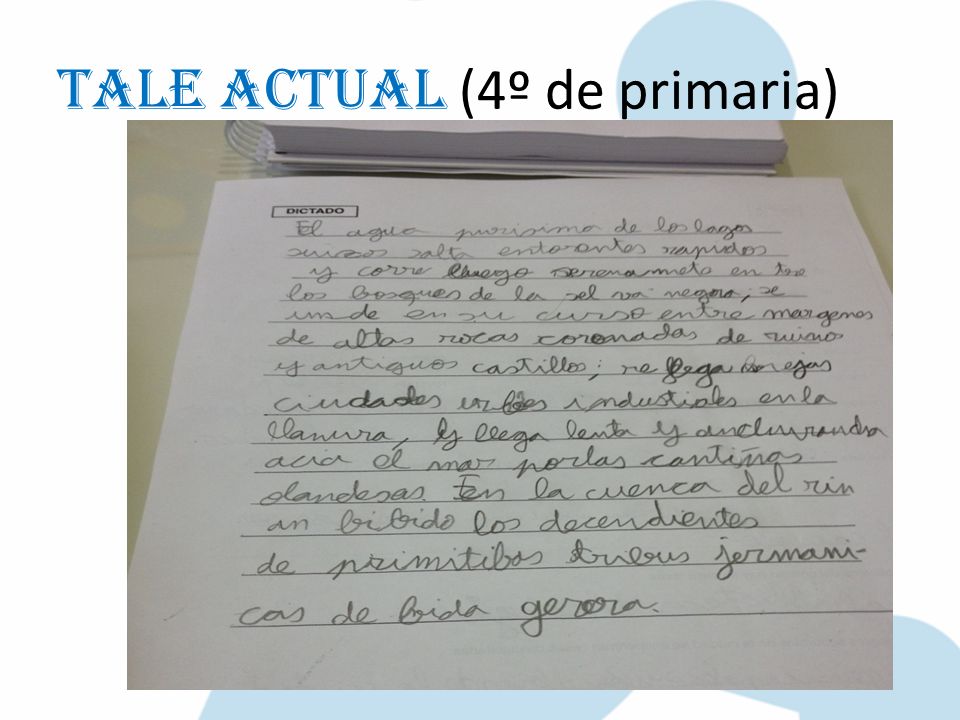 TALE ACTUAL (4º de primaria)
DICTADO
El agua purisima de los lagos
suizos salta entorentes rapidos
y corre luego serenamete en tre
los bosques de la sel va negra; se
un de en su curso entre margenes
de altas rocas coronadas de ruinos
y antiguos castillos; re flega biejas
ciudades urbes industiales en la
llanura, y llega lenta y anchurandra
acia el mar por las
olandesas. En la cuenca del rin
an bibido los decendientes
de primitibas tribus jermani-
cas de bida gerora.